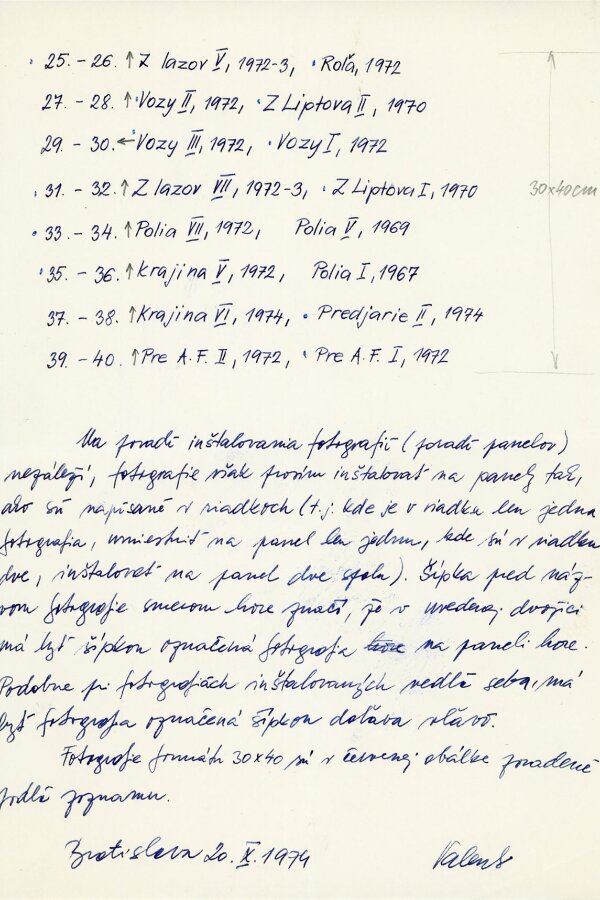 25. - 26. ↑ Z lazov V, 1972-3, • Roľa, 1972
27. - 28. ↑ Vozy II, 1972, • Z Liptova II, 1970
29. - 30. ← Vozy III, 1972, • Vozy I, 1972
31. - 32. ↑ Z lazov VII, 1972-3, • Z Liptova I, 1970
30x40cm
33. - 34. ↑ Polia VII, 1972, Polia V, 1969
35. - 36. ↑ Krajina V, 1972, Polia I, 1967
37. - 38. ↑ Krajina VI, 1974, • Predjarie II, 1974
39. - 40. ↑ Pre A.F. II, 1972, • Pre A.F. I, 1972
Na poradí inštalovania fotografií (poradí panelov)
nezáleží, fotografie však prosím inštalovať na panely tak,
ako sú napísané v riadkoch (t.j. kde je v riadku len jedna
fotografia, umiestniť na panel len jednu, kde sú v riadku
dve, inštalovať na panel dve spolu). Šípka pred náz-
vom fotografie smerom hore značí, že v uvedenej dvojici
má byť šípkou označená fotografia hore na paneli hore.
Podobne pri fotografiách inštalovaných vedľa seba, má
byť fotografia označená šípkou doľava vľavo.
Fotografie formátu 30x40 sú v červenej obálke zoradené
podľa zoznamu.
Bratislava 20. IX. 1974